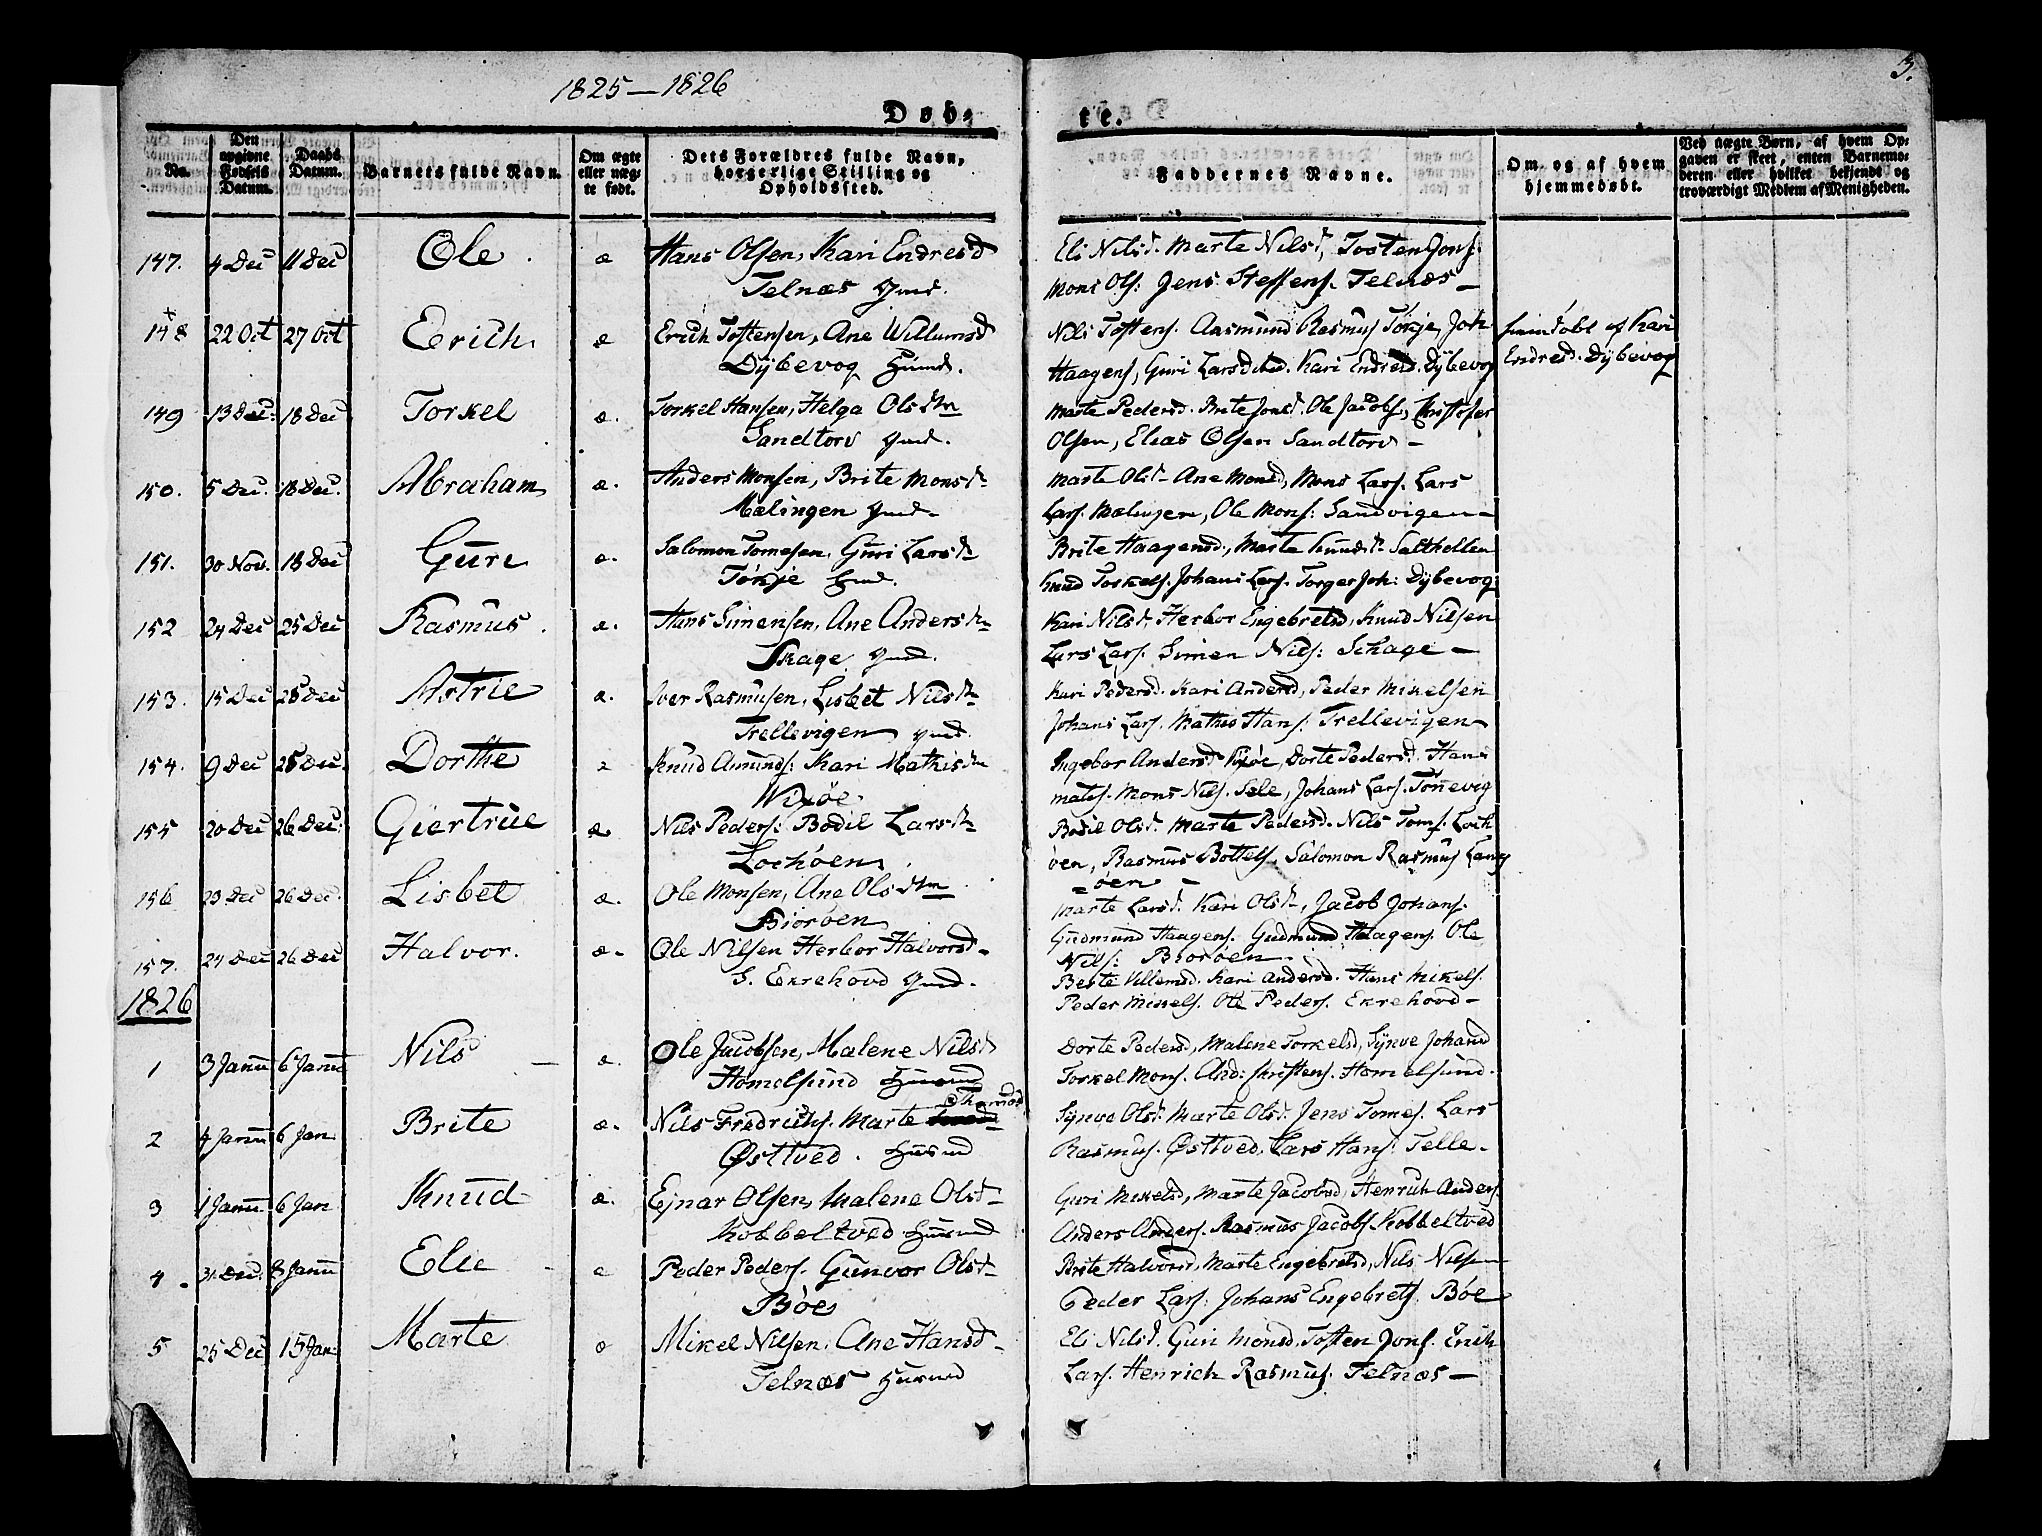 1825—1826
3.
Døb-
te.
No.
Den
opgivne
Fødsels
Datum.
Daabs
Datum.
Barnets fulde Navn.
Om ægte
eller uæg-
te født.
Dets Forældres fulde Navn,
borgerlige Stilling og
Opholdssted.
Faddernes Navne.
Om og af hvem
hjemmedøbt.
Ved uægte Børn, af hvem Op-
gaven er skeet, enten Barnemo-
deren eller hvilket bekjendt og
troværdigt Medlem af Menigheden.
147. 4 Dec 11 Dec Ole. æ Hans Olsen, Kari Endresd
Telnæs Gmd.
Eli Nilsd. Marte Nilsd, Tosten Jons.
Mons Ols. Jens Steffens. Telnæs —
148 22 Oct 27 Oct Erich æ Erich Tostensen, Ane Willumsd
Dÿbevog Huusd.
Nils Tostens. Aasmund Rasmus Tøkje, Joh
Haagens, Guri Larsd. Kari Endresd. Dÿbevog
hiemdøbt af Kari
Endresd. Dybevog
149 13 Dec. 18 Dec Torkel æ. Torkel Hansen, Helga Olsdtn
Sandtorv Gmd.
Marte Pedersd. Brite Jonsd. Ole Jacobs, Kristofer
Olsen, Elias Olsen Sandtorv —
150. 5 Dec. 18 Dec. Abraham æ. Anders Monsen, Brite Monsd.
Mælingen Gmd.
Marte Olsd. Ane Monsd, Mons Lars. Lars
Lars. Mælingen, Ole Mons. Sandvigen —
151. 30 Nov. 18 Dec Guri æ. Salomon Tomesen, Guri Larsd
Tøkje
Brite Haagensd, Marte Knudsd. Salthellen
Knud Torkels. Johans Lars. Torger Joh: Dÿbevog
152 24 Dec 25 Dec Rasmus. æ. Hans Simensen, Ane Andersd
Skage Gmd.
Kari Nilsd, Herbor Engebretsd, Knud Nilsen
Lars Lars. Simen Nils: Schage —
153. 15 Dec 25 Dec Astrie æ. Iver Rasmusen, Lisbet Nilsd
Trellevigen Gmd.
Kari Pedersd. Kari Andersd, Peder Mikelsen
Johans Lars. Mathis Hans. Trellevigen
154. 9 Dec 25 Dec. Dorthe æ Knud Amunds: Kari Mathisd
Wixøe
Ingebor Andersd Wixøe, Dorte Pedersd. Hans
Mats. Mons Nils. Sele, Johans Lars. Tønnevig
155 20 Dec 26 Dec. Giertrue æ. Nils Peders: Bodil Larsd
Lochøen.
Bodil Olsd. Marte Pedersd. Nils Toms. Loch
øen, Rasmus Bottels. Salomon Rasmus Lang
=øen —
156 23 Dec 26 Dec. Lisbet æ. Ole Monsen, Ane Olsdtn
Biorøen
Marte Larsd. Kari Olsd, Jacob Johans.
Gudmund Haagens. Gudmund Haagens. Ole
Nils: Biorøen.
157. 24 Dec 26 Dec Halvor. æ. Ole Nilsen Herbor Halvorsd.
S. Ekrehovd Gmd.
Beste Villemsd. Kari Andersd. Hans Mikels.
Peder Mikels. Ole Peders. Ekrehovd —
1826
1 3 Janu 6 Janu Nils æ. Ole Jacobsen, Malene Nilsd
Homelsund
Dorte Pedersd, Malene Torkelsd, Synve Johansd
Torkel Mons. And: Kristens. Homelsund.
2 4 Janu 6 Jan Brite æ. Nils Fredrichs. Marte
Thomasd
Østtved. Huusmd
Synve Olsd. Marte Olsd. Jens Tomes. Lars
Rasmus. Østtved, Lars Hans. Telle.
3 1 Janu 6 Jan Knud æ. Ejnar Olsen, Malene Olsd.
Kobbeltved Huusmd
Guri Mikelsd, Marte Jacobsd, Henrich Anders.
Anders Anders. Rasmus Jacobs Kobbeltved
4. 31 Dec. 8 Janu Elie æ Peder Peders. Gunvor Olsd.
Bøe
Brite Halvorsd, Marte Engebretsd, Nils Nilsen
Peder Lars. Johans Engebrets. Bøe
5 25 Dec 15 Jan. Marte æ Mikel Nilsen, Ane Hansd.
Telnæs Huusmd
Eli Nilsd. Guri Monsd. Tosten Jons. Erich
Lars. Henrich Rasmus. Telnæs —